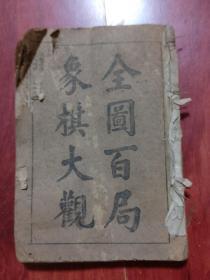 全圖百局
象棋大觀